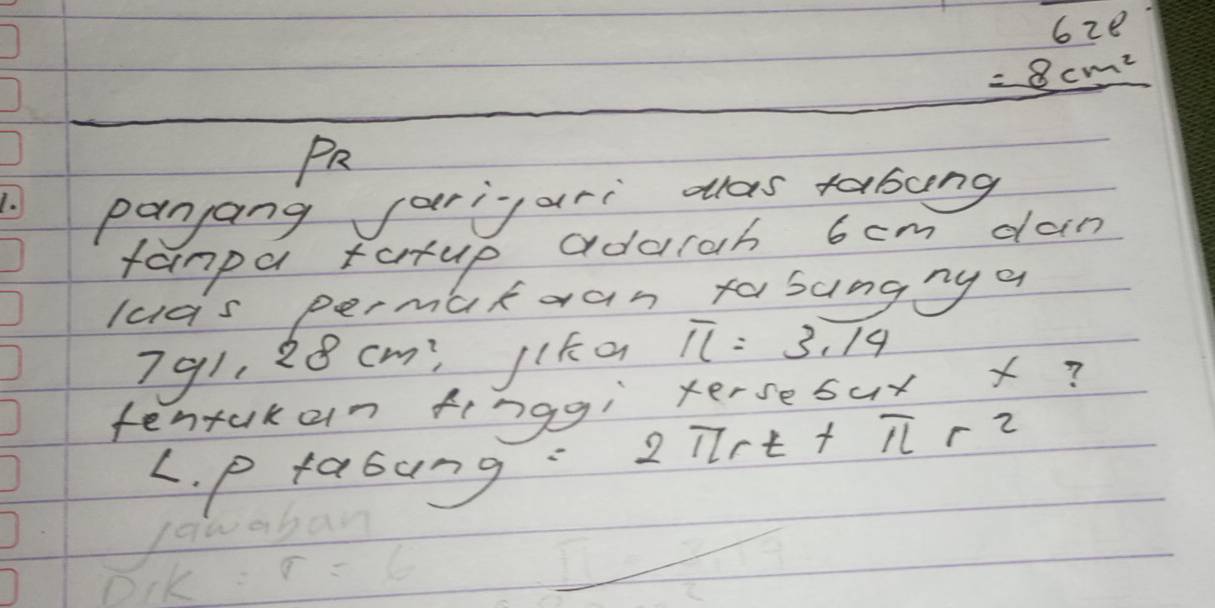 628
= 8 cm²
PR
1. panjang jari-jari alas tabung
tanpa tutup adalah 6 cm dan
luas permukaan tabungnya
791,28 cm², jika π = 3,14
tentukan tinggi tersebut t ?
L.p tabung = 2 πrt + πr²
jawaban
Dik : r = 6 π = 3,14